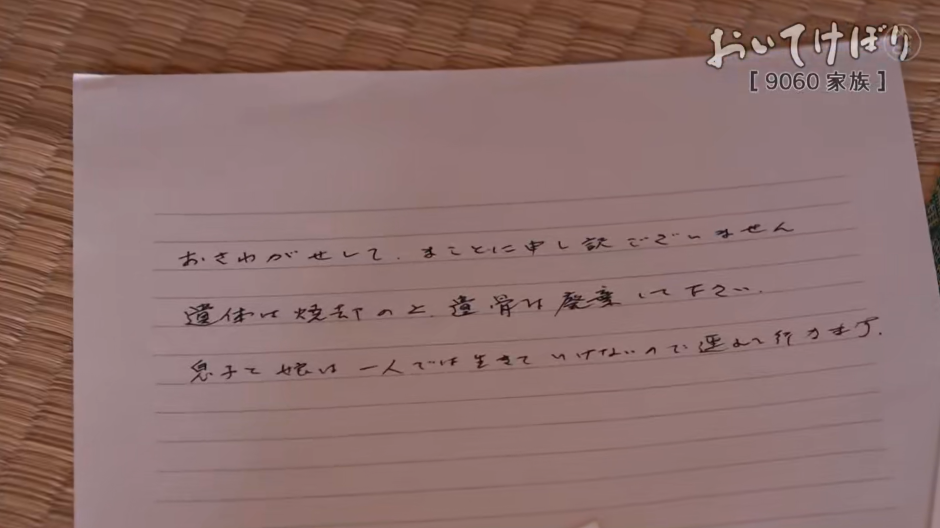 おいてけぼり
[ 9060 家族 ]
おさわがせして、まことに申し訳ございません
遺体は焼却のと、遺骨は廃棄して下さい.
息子と娘は一人では生きていけないので連れて行カます.